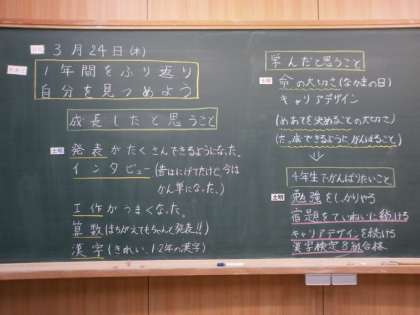 3月24日(木)
1年間をふり返り
自分を見つめよう
成長したと思うこと
発表がたくさんできるようになった。
インタビュー(昔はにげてたけど、今は
かん単になった。)
工作がうまくなった。
算数(まちがえてもちゃんと発表!!)
漢字(きれい、1・2年の漢字)
学んだと思うこと
命の大切さ(なかまの日)
キャリアデザイン
(めあてを決めることの大切さ)
(たっ成できるようにがんばること)
4年生でがんばりたいこと
勉強をしっかりやる
宿題をていねいに続ける
キャリアデザインを続ける
漢字検定8級合格